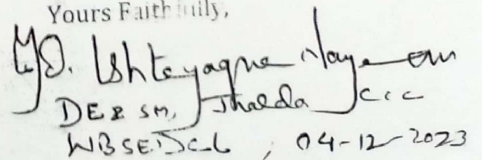 Yours Faithfully,
Md. Ishteyaque Nayeem
DE & SM, Jhalda CCC
WBSEDCL, 04-12-2023